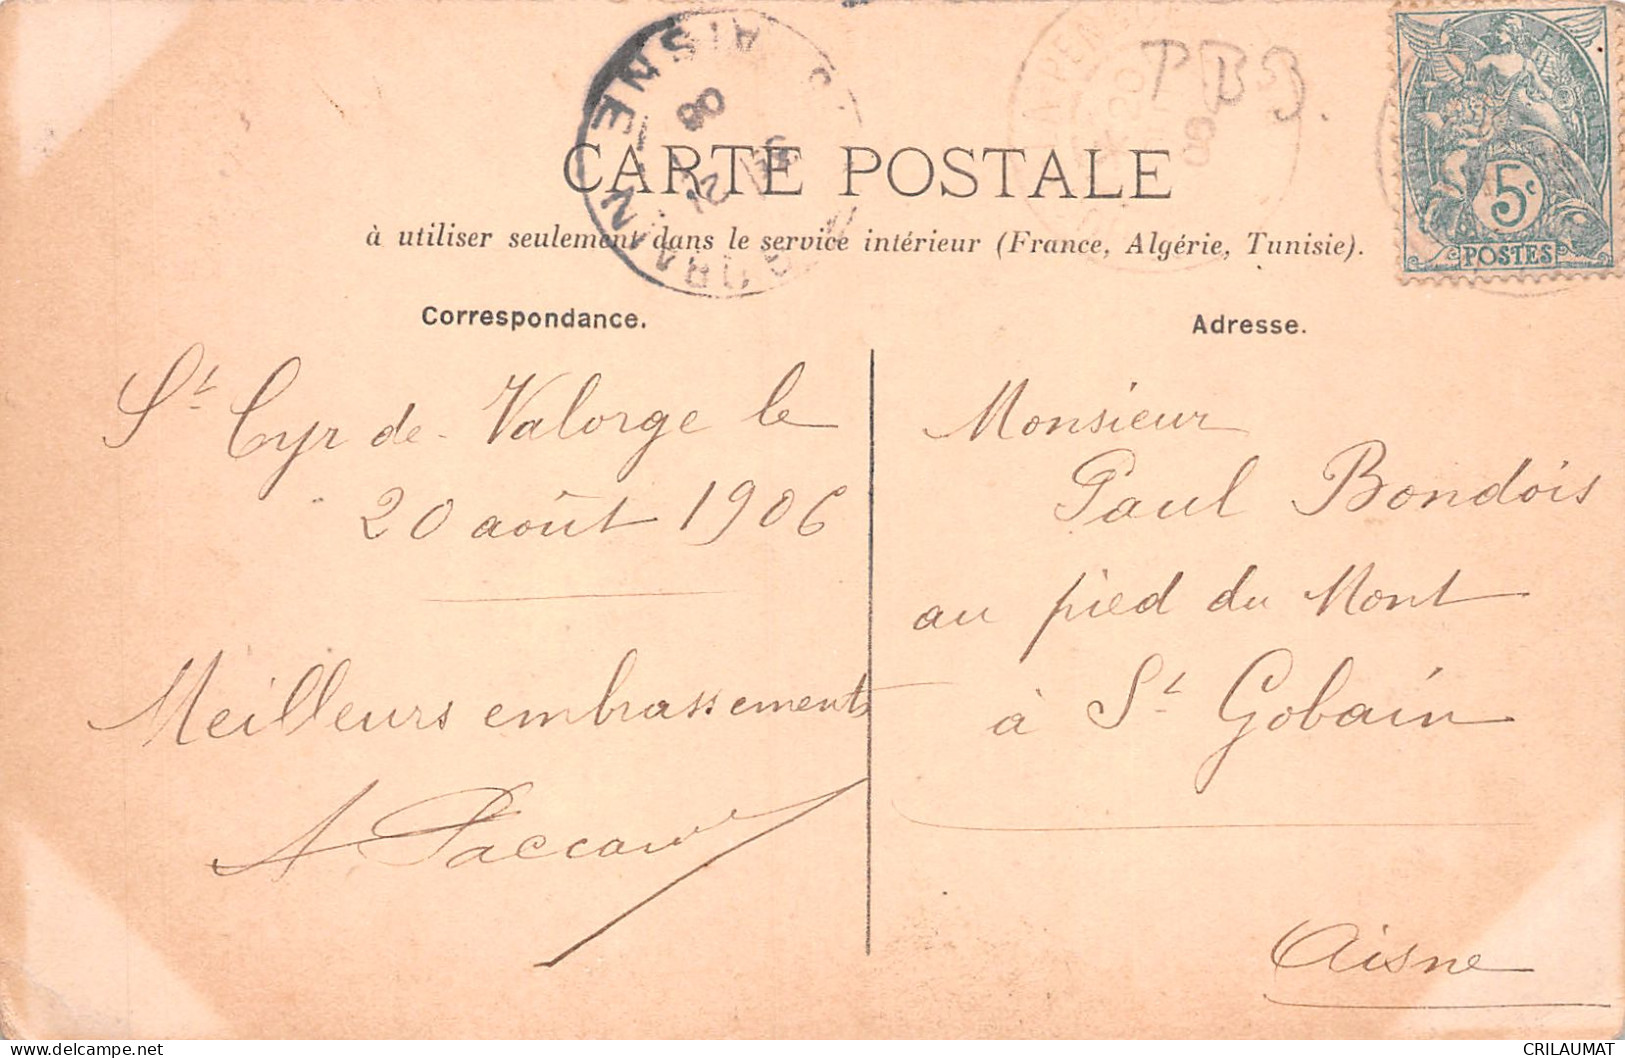 P B B.
CARTE POSTALE
5c
POSTES
AISNE
à utiliser seulement dans le service intérieur (France, Algérie, Tunisie).
Correspondance.
St Cyr de Valorge le
20 août 1906
Meilleurs embrassements
Adresse.
Monsieur
Paul Bondois
au pied du Mont
à St Gobain
Aisne
delcampe.net
CRILAUMAT